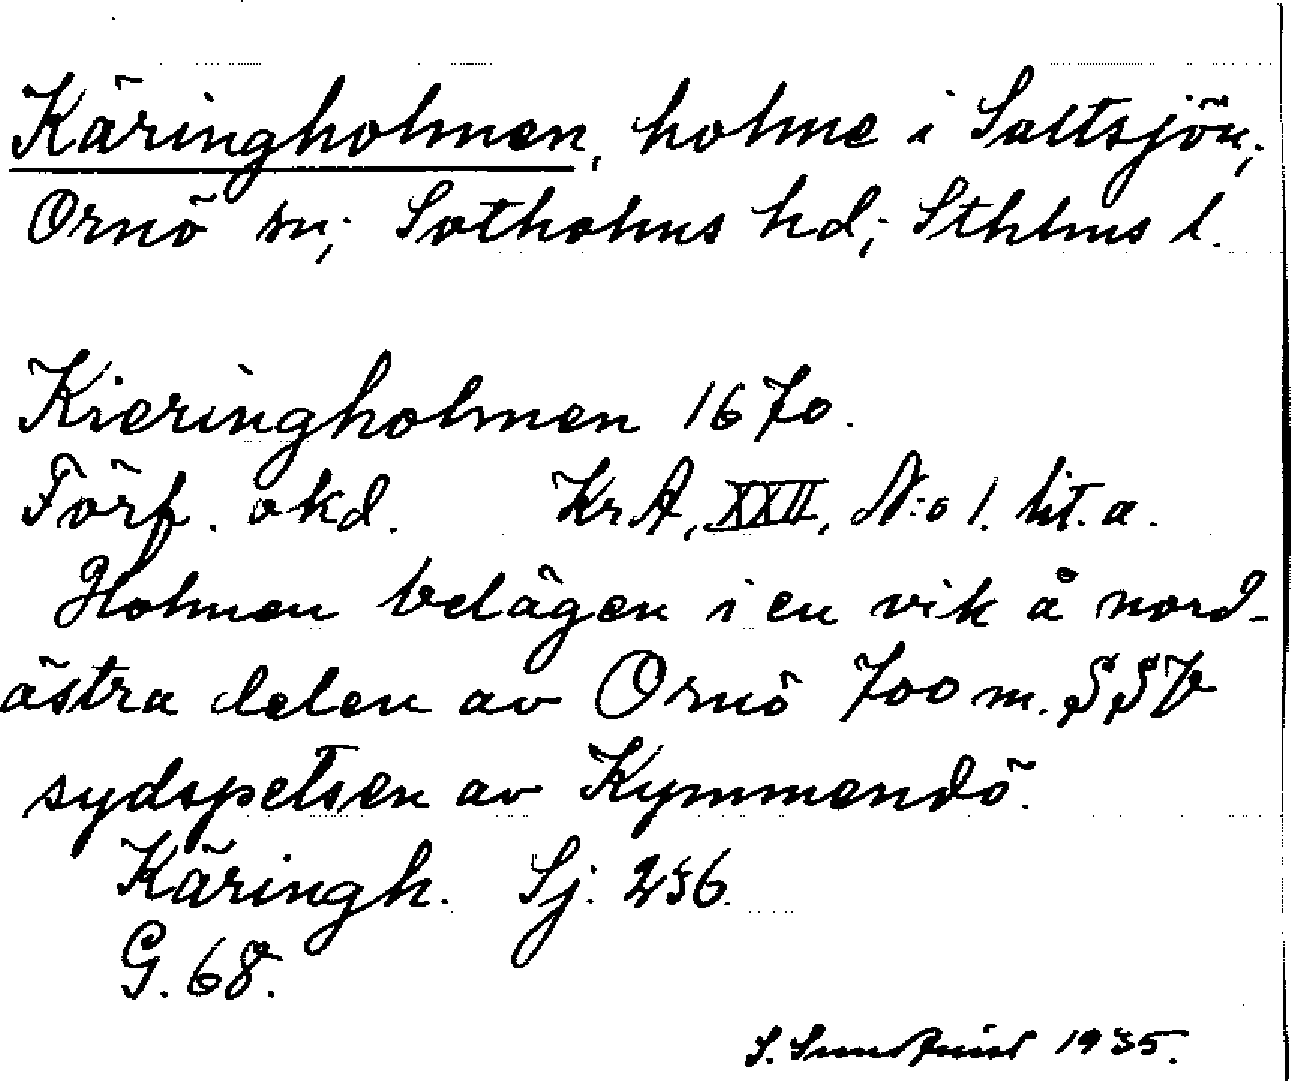 Käringholmen, holme i Saltsjön;
Ornö sn; Sotholms hd; Sthlms l.
Kieringholmen 1670.
Förf. okd. KrA, XXII, N:o 1. lit. a.
Holmen belägen i en vik å nord-
östra delen av Ornö 700 m. SSV
sydspetsen av Kymmendö.
Käringh. Sj. 256.
G. 68.
S. 1935.